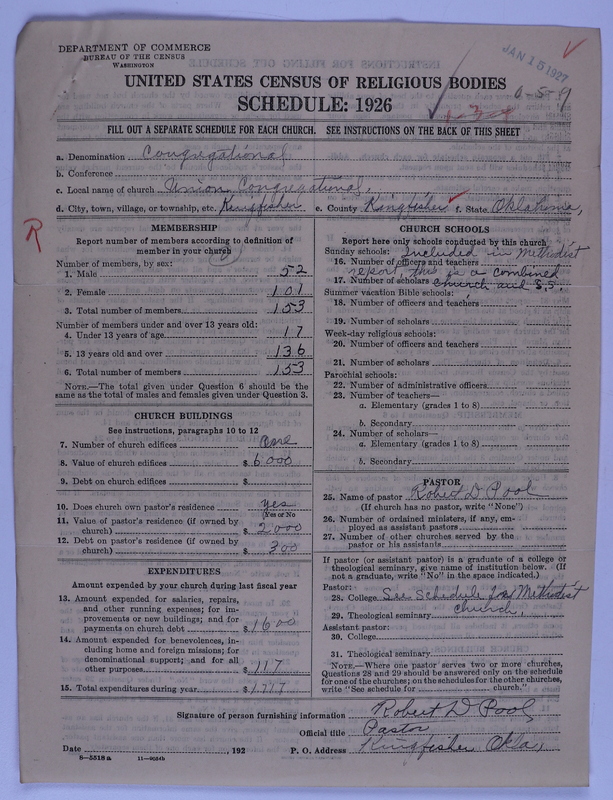 DEPARTMENT OF COMMERCE
BUREAU OF THE CENSUS
WASHINGTON
JAN 15 1927
UNITED STATES CENSUS OF RELIGIOUS BODIES
SCHEDULE: 1926
FILL OUT A SEPARATE SCHEDULE FOR EACH CHURCH. SEE INSTRUCTIONS ON THE BACK OF THIS SHEET
a. Denomination Congregational
b. Conference
c. Local name of church Union Congregational,
d. City, town, village, or township, etc. Kingfisher e. County Kingfisher f. State Oklahoma,
R
MEMBERSHIP
Report number of members according to definition of member in your church
Number of members, by sex:
1. Male 52
2. Female 101
3. Total number of members 153
Number of members under and over 13 years old:
4. Under 13 years of age 17
5. 13 years old and over 136
6. Total number of members 153
NOTE.—The total given under Question 6 should be
same as the total of males and females given under Question 3.
CHURCH BUILDINGS
See instructions, paragraphs 10 to 12
7. Number of church edifices One
8. Value of church edifices $ 6000
9. Debt on church edifices $
10. Does church own pastor's residence Yes
(Yes or No)
11. Value of pastor's residence (if owned by
church) $ 2000
12. Debt on pastor's residence (if owned by
church) $ 300
EXPENDITURES
Amount expended by your church during last fiscal year
13. Amount expended for salaries, repairs,
and other running expenses; for im-
provements or new buildings; and for
payments on church debt $ 1600
14. Amount expended for benevolences, in-
cluding home and foreign missions; for
denominational support; and for all
other purposes $ 117
15. Total expenditures during year $ 1717
CHURCH SCHOOLS
Report here only schools conducted by this church
Sunday schools: Included in Methodist
16. Number of officers and teachers
report, this is a combined
17. Number of scholars church and S.S.
Summer vacation Bible schools:
18. Number of officers and teachers
19. Number of scholars
Week-day religious schools:
20. Number of officers and teachers
21. Number of scholars
Parochial schools:
22. Number of administrative officers
23. Number of teachers—
a. Elementary (grades 1 to 8)
b. Secondary
24. Number of scholars—
a. Elementary (grades 1 to 8)
b. Secondary
PASTOR
25. Name of pastor Robert D Pool
(If church has no pastor, write "None")
26. Number of ordained ministers, if any, em-
ployed as assistant pastors
27. Number of other churches served by the
pastor or his assistants
If pastor (or assistant pastor) is a graduate of a college or
theological seminary, give name of institution below. (If
not a graduate, write "No" in the space indicated.)
Pastor:
28. College See Schedule for Methodist
29. Theological seminary church,
Assistant pastor:
30. College
31. Theological seminary
NOTE.—Where one pastor serves two or more churches,
Questions 28 and 29 should be answered only on the schedule
for one of the churches; on the schedules for the other churches,
write "See schedule for church."
Signature of person furnishing information Robert D Pool
Official title Pastor
Date , 192 P. O. Address Kingfisher Okla,
8—5518 a 11—9034b